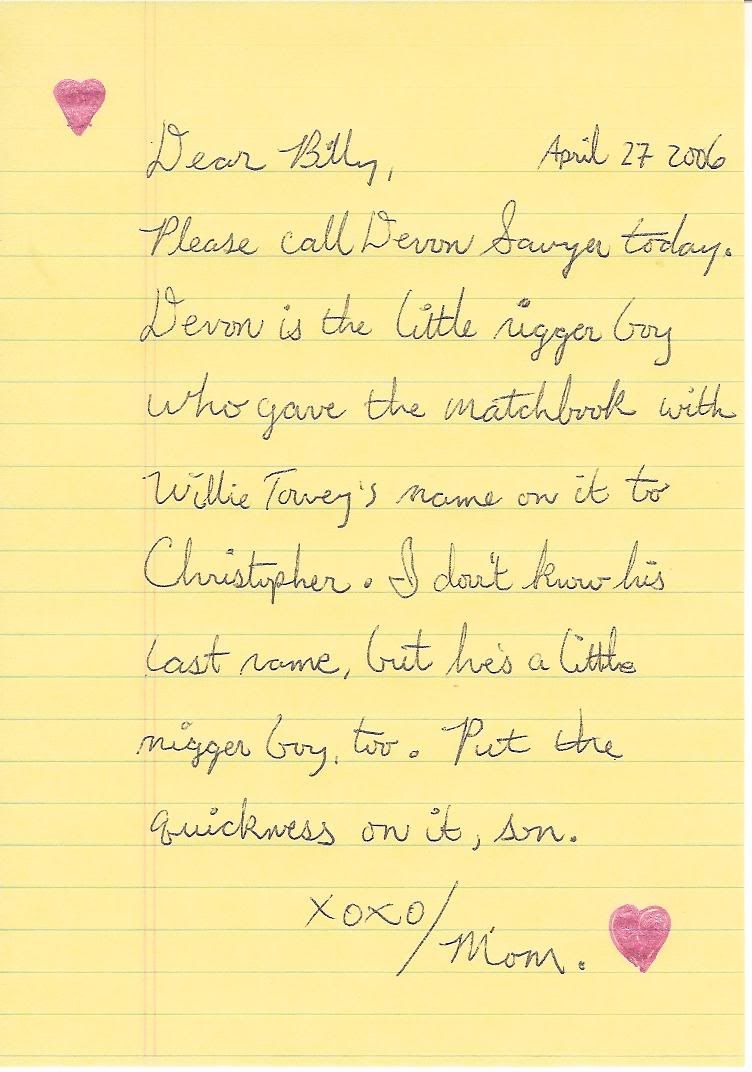 Dear Billy, April 27 2006
Please call Devon Sawyer today.
Devon is the little nigger boy
who gave the matchbook with
Willie Tovey's name on it to
Christopher. I don't know his
last name, but he's a little
nigger boy, too. Put the
quickness on it, son.
XOXO/Mom.